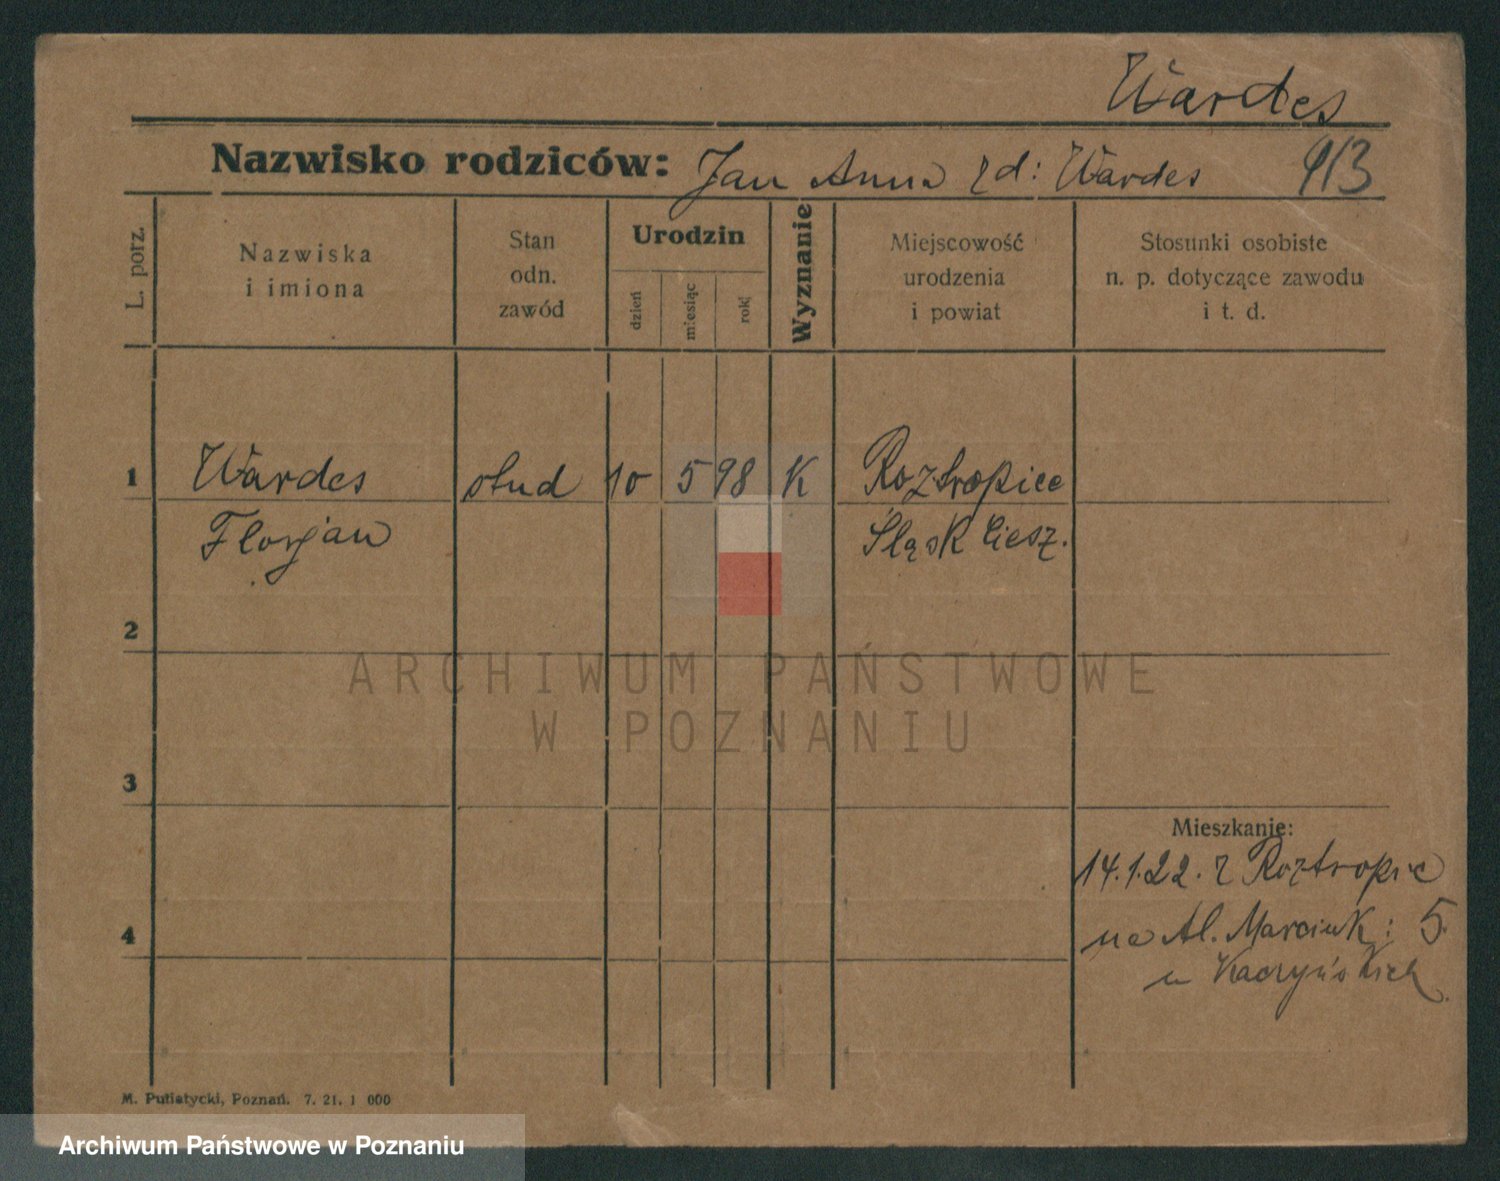 Wardes
Nazwisko rodziców: Jan Anna zd: Wardes 913
L. porz.
Nazwiska
i imiona
Stan
odn.
zawód
Urodzin
dzień
miesiąc
rok
Wyznanie
Miejscowość
urodzenia
i powiat
Stosunki osobiste
n. p. dotyczące zawodu
i t. d.
1 Wardes stud 10 5 98 K Roztropice
Florjan Śląsk Ciesz.
2
ARCHIWUM PAŃSTWOWE
W POZNANIU
3
Mieszkanie:
14.1.22. z Roztropic
4
na Al. Marcink: 5.
u Kaczyńskich
M. Putiatycki, Poznań. 7. 21. 1 000
Archiwum Państwowe w Poznaniu